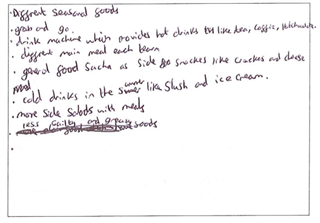 • Diffrent seasonal foods
• grab and go.
• drink machine which provides hot drinks like tea, coffie, Hotchoclate.
• diffrent main meal each
• good Sucha as side snackes like Crackes and cheese
• cold drinks in the summer like Slush and ice cream.
• more side Salads with meals
less and
foods
•